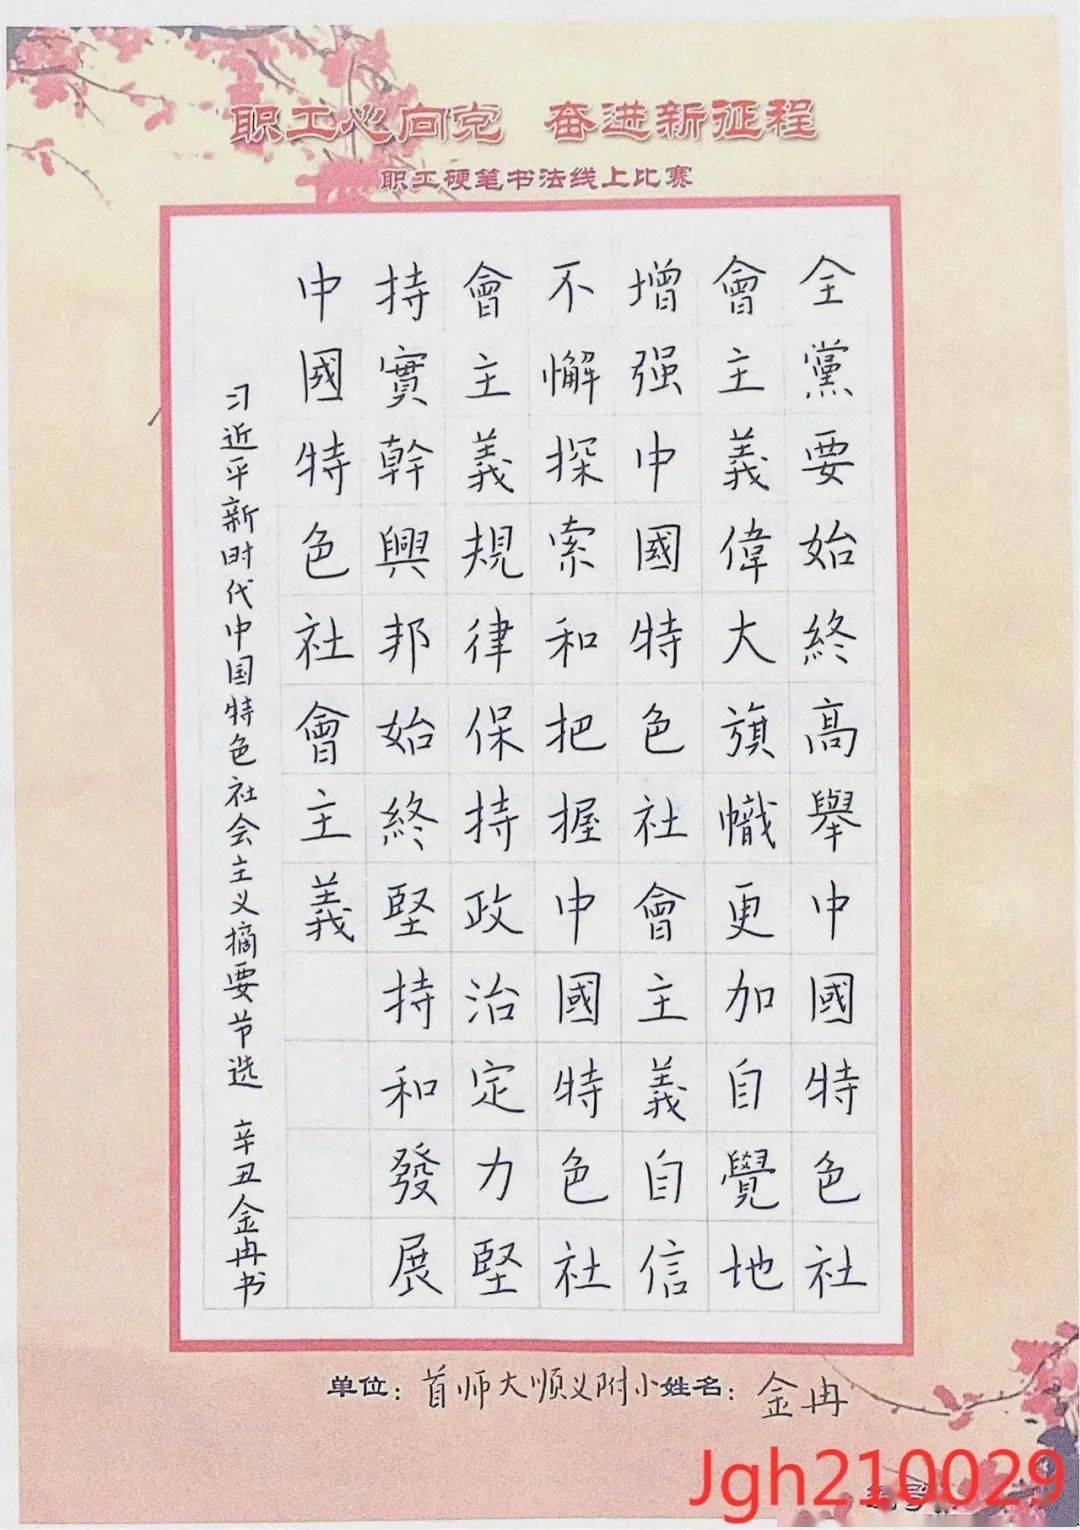 职工心向党 奋进新征程
职工硬笔书法线上比赛
全黨要始終高舉中國特色社
會主義偉大旗幟更加自覺地
增强中國特色社會主義自信
不懈探索和把握中國特色社
會主義規律保持政治定力堅
持實幹興邦始終堅持和發展
中國特色社會主義
习近平新时代中国特色社会主义摘要节选 辛丑金冉书
单位：首师大顺义附小姓名：金冉
Jgh210029